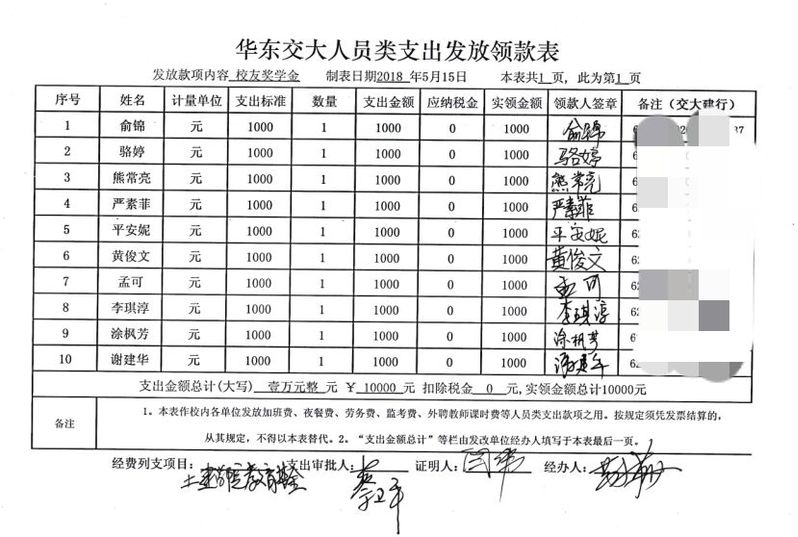 华东交大人员类支出发放领款表
发放款项内容 校友奖学金 制表日期2018 年5月15日 本表共1 页，此为第1 页
序号 姓名 计量单位 支出标准 数量 支出金额 应纳税金 实领金额 领款人签章 备注（交大建行）
1 俞锦 元 1000 1 1000 0 1000 俞锦 6 37
2 骆婷 元 1000 1 1000 0 1000 骆婷 6
3 熊常亮 元 1000 1 1000 0 1000 熊常亮 6
4 严素菲 元 1000 1 1000 0 1000 严素菲 6
5 平安妮 元 1000 1 1000 0 1000 平安妮 62
6 黄俊文 元 1000 1 1000 0 1000 黄俊文 62
7 孟可 元 1000 1 1000 0 1000 孟可 62
8 李琪淳 元 1000 1 1000 0 1000 李琪淳 62
9 涂枫芳 元 1000 1 1000 0 1000 涂枫芳 62
10 谢建华 元 1000 1 1000 0 1000 谢建华 62
支出金额总计(大写) 壹万元整 元 ￥ 10000 元 扣除税金 0 元,实领金额总计10000元
备注
1、本表作校内各单位发放加班费、夜餐费、劳务费、监考费、外聘教师课时费等人员类支出款项之用。按规定须凭发票结算的，
从其规定，不得以本表替代。2。“支出金额总计”等栏由发改单位经办人填写于本表最后一页。
经费列支项目: 土建学院教育基金 支出审批人: 证明人: 闫伟 经办人: